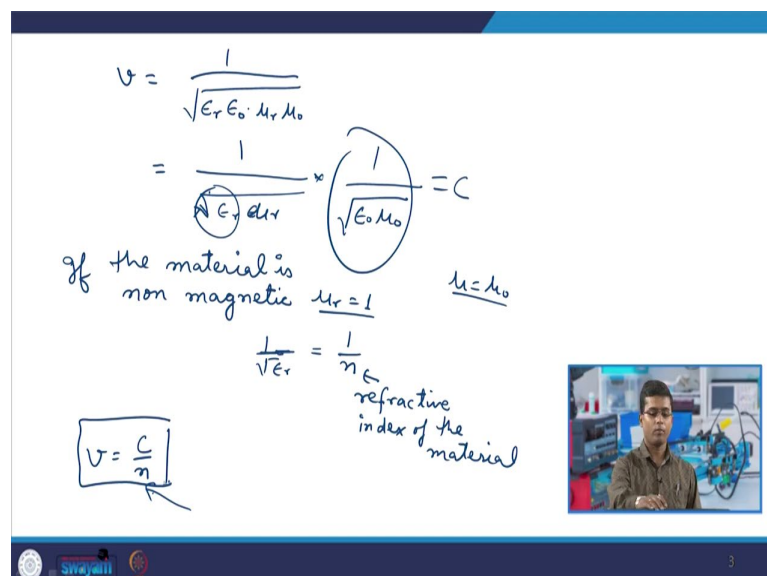 v = 1 / √(εr ε0 · μr μ0)
= 1 / √(εr μr) × 1 / √(ε0 μ0) = C
If the material is
non magnetic μr = 1
μ = μ0
1 / √εr = 1 / n ←
refractive
index of the
material
v = C / n
swayam
3